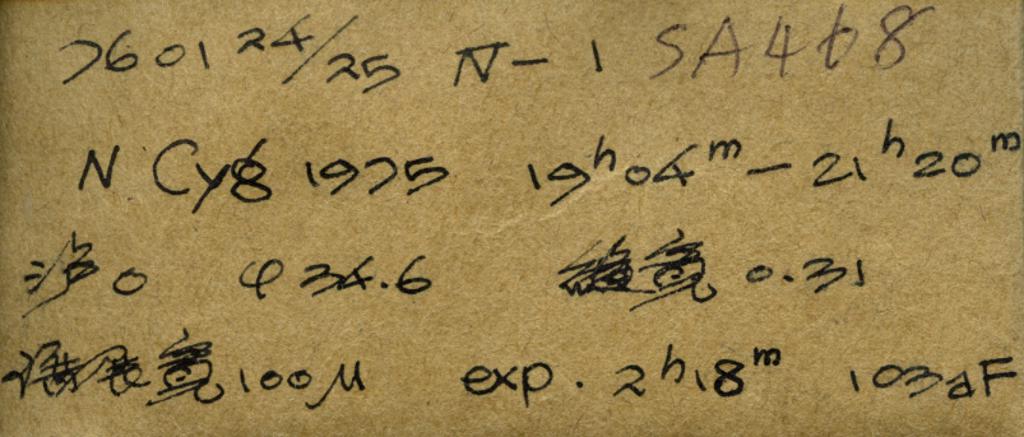 760124/25 N-1 SA468
N Cyg 1975 19h04m-21h20m
沪0 φ34.6 缝宽 0.31
谱展宽100μ exp. 2h18m 103aF